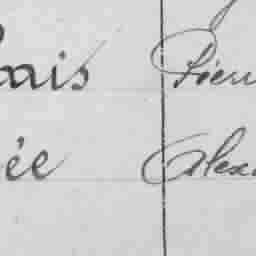 ais Pierr
ée Alexa